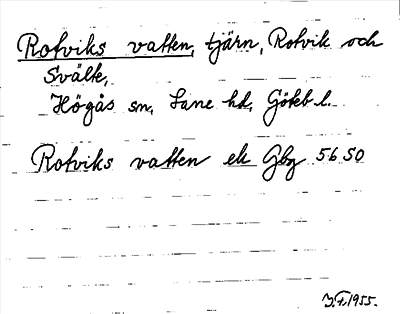 Rotviks vatten, tjärn, Rotvik och
Svälte,
Högås sn, Lane hd, Göteb l.
Rotviks vatten ek Gbg 5650
J.F. 1955.